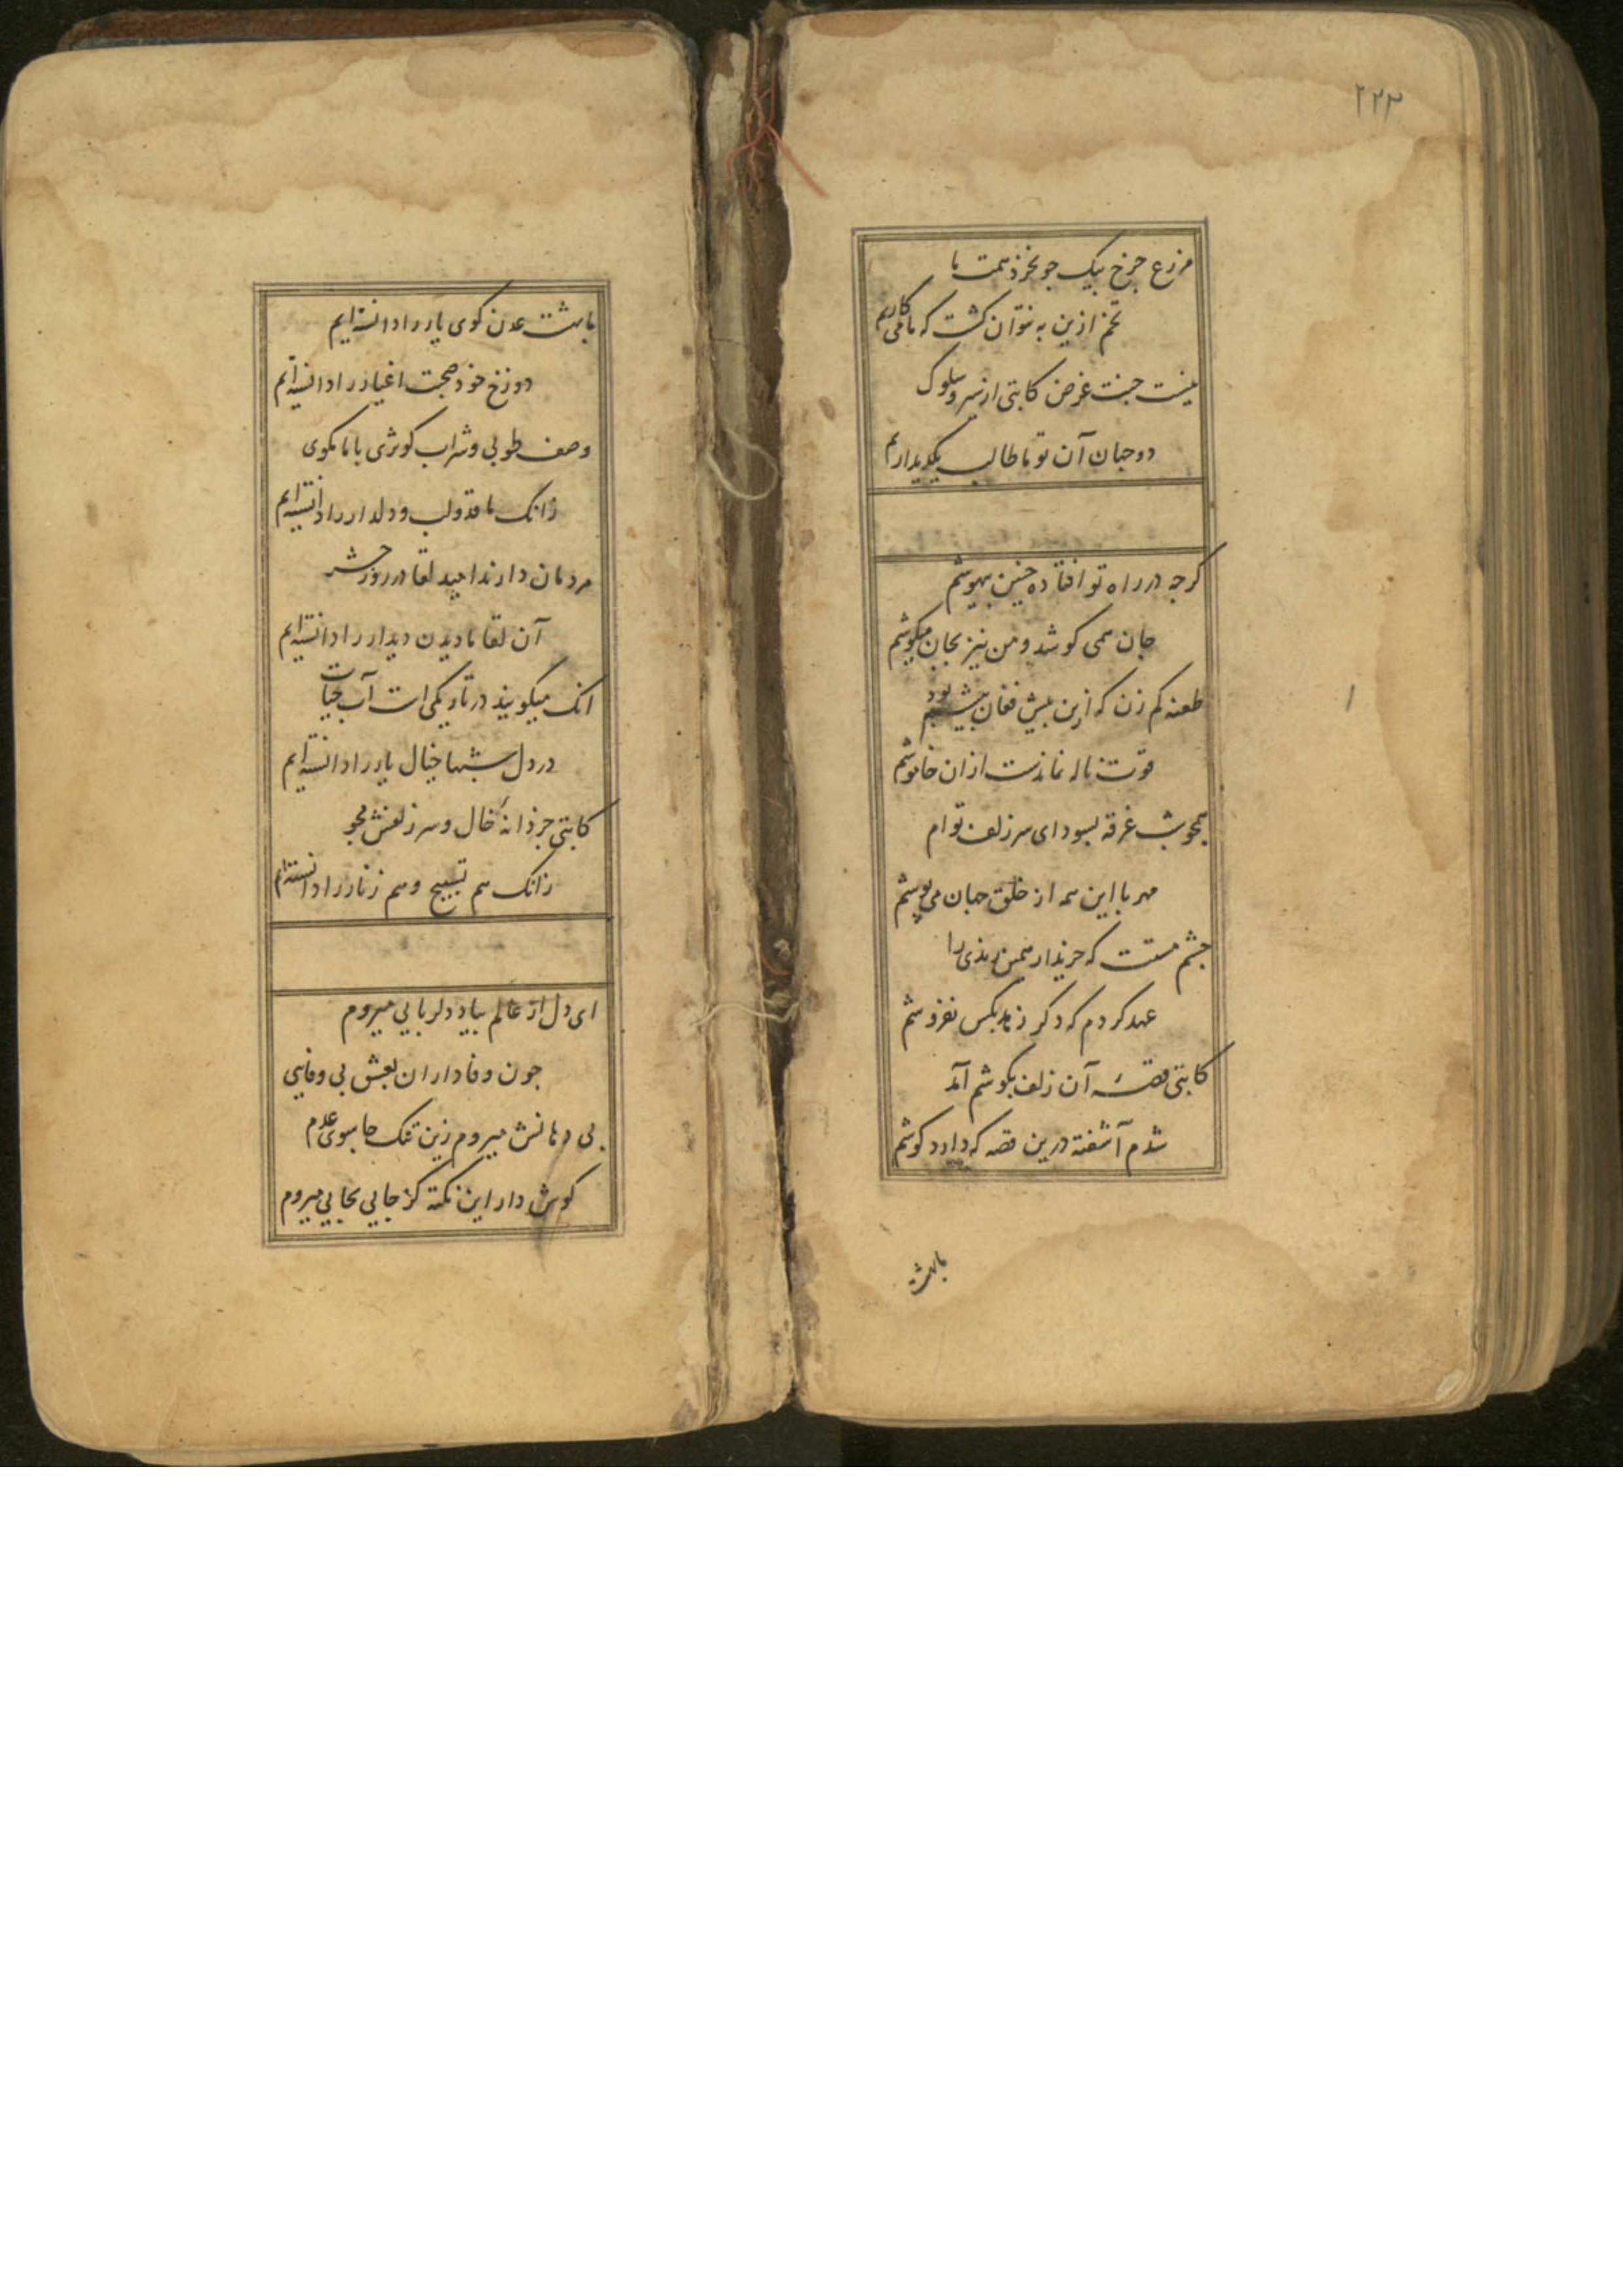 ۲۲۳
مزرع جرخ بیک جو نخرد همت ما
تخم ازین به نتوان کشت که ما می کاریم
نیست جنت غرض کاتبی از سیر و سلوک
دو جهان آن تو ما طالب یک دیداریم
کرجه در راه تو افتاده جنین بیهوشم
جان همی کوشد و من نیز بجان میکوشم
طعنه کم زن که ازین بیش فغان بیشم بود
قوت ناله نماندست از ان خاموشم
همجو شب غرقه بسودای سر زلف توام
مهر با این همه از خلق جهان می پوشم
جشم مستت که خریدار همین رندی را
عهد کردم که دکر زهد بکس نفروشم
کاتبی قصهٔ آن زلف بکوشم آمد
شدم آشفته درین قصه که دارد کوشم
بابهشت
ما بهشت عدن کوی یار را دانسته ایم
دوزخ خود صحبت اغیار را دانسته ایم
وصف طوبی و شراب کوثری با ما مکوی
زانک ما قد و لب دلدار را دانسته ایم
مردمان دارند امید لقا در روز حشر
آن لقا ما دیدن دیدار را دانسته ایم
انک میکویند در تاریکی است آب حیات
در دل شبها خیال یار را دانسته ایم
کاتبی جز دانهٔ خال و سر زلفش مجو
زانک هم تسبیح و هم زنار را دانسته ایم
ای دل از عالم بیاد دلربایی میروم
جون وفاداران بعشق بی وفایی
بی دهانش میروم زین تنک جا سوی عدم
کوش دار این نکته کز جایی بجایی میروم